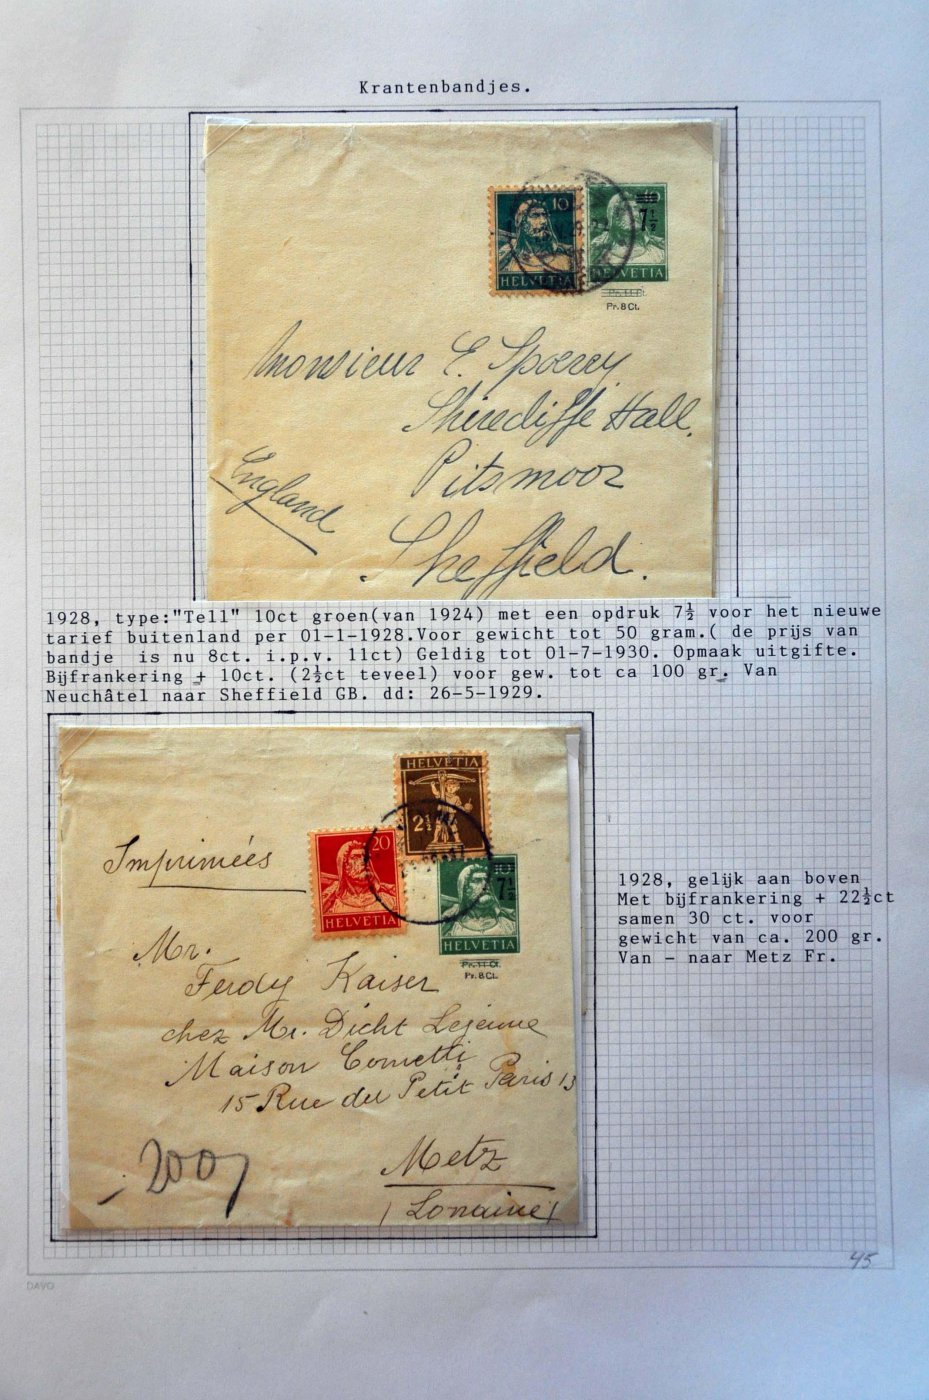 Krantenbandjes.
10
HELVETIA
10
7½
HELVETIA
Pr. 11 Ct.
Pr. 8 Ct.
Monsieur E. Spoerry
Shirecliffe Hall.
Pitsmoor
England
Sheffield.
1928, type:"Tell" 10ct groen(van 1924) met een opdruk 7½ voor het nieuwe
tarief buitenland per 01-1-1928.Voor gewicht tot 50 gram.( de prijs van
bandje is nu 8ct. i.p.v. 11ct) Geldig tot 01-7-1930. Opmaak uitgifte.
Bijfrankering + 10ct. (2½ct teveel) voor gew. tot ca 100 gr. Van
Neuchâtel naar Sheffield GB. dd: 26-5-1929.
HELVETIA
2½
20
HELVETIA
10
7½
HELVETIA
Pr. 11 Ct.
Pr. 8 Ct.
Imprimées
Mr.
Ferdy Kaiser
chez Mr. Dicht Lejeune
Maison Cometti
15 Rue du Petit Paris 13
Metz
(Lorraine)
200
1928, gelijk aan boven
Met bijfrankering + 22½ct
samen 30 ct. voor
gewicht van ca. 200 gr.
Van - naar Metz Fr.
45
DAVO